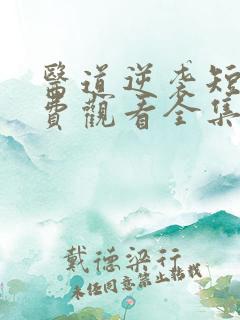 醫道逆袭短
費觀看全集
戴德梁行
未经同意禁止转载